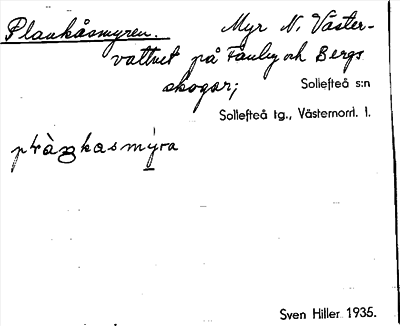 Plankåsmyren. Myr N. Väster-
vattnet på Fanby och Bergs
skogar; Sollefteå s:n
Sollefteå tg., Västernorrl. l.
plàŋkasmýra
Sven Hiller 1935.